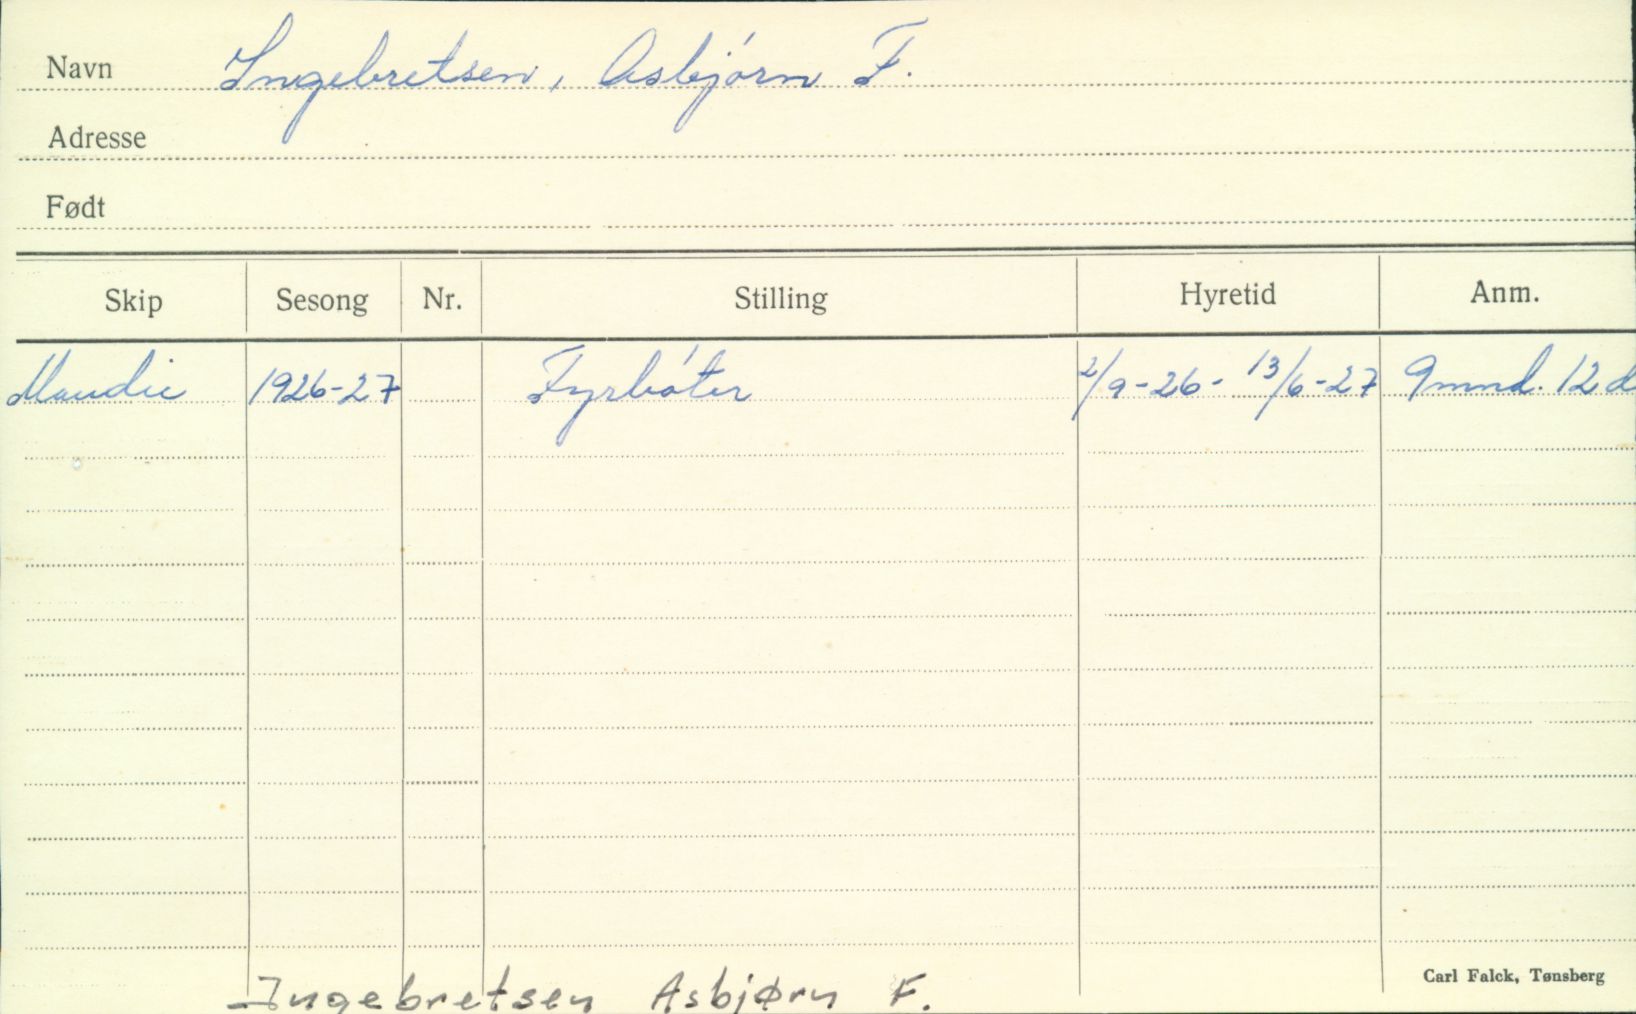 Navn Ingebretsen, Asbjórn F.
Adresse
Født
Skip Sesong Nr. Stilling Hyretid Anm.
Maudie 1926-27 Fyrbóter 2/9-26- 13/6-27 9mnd. 12 d
Carl Falck, Tønsberg
Ingebretsen Asbjørn F.